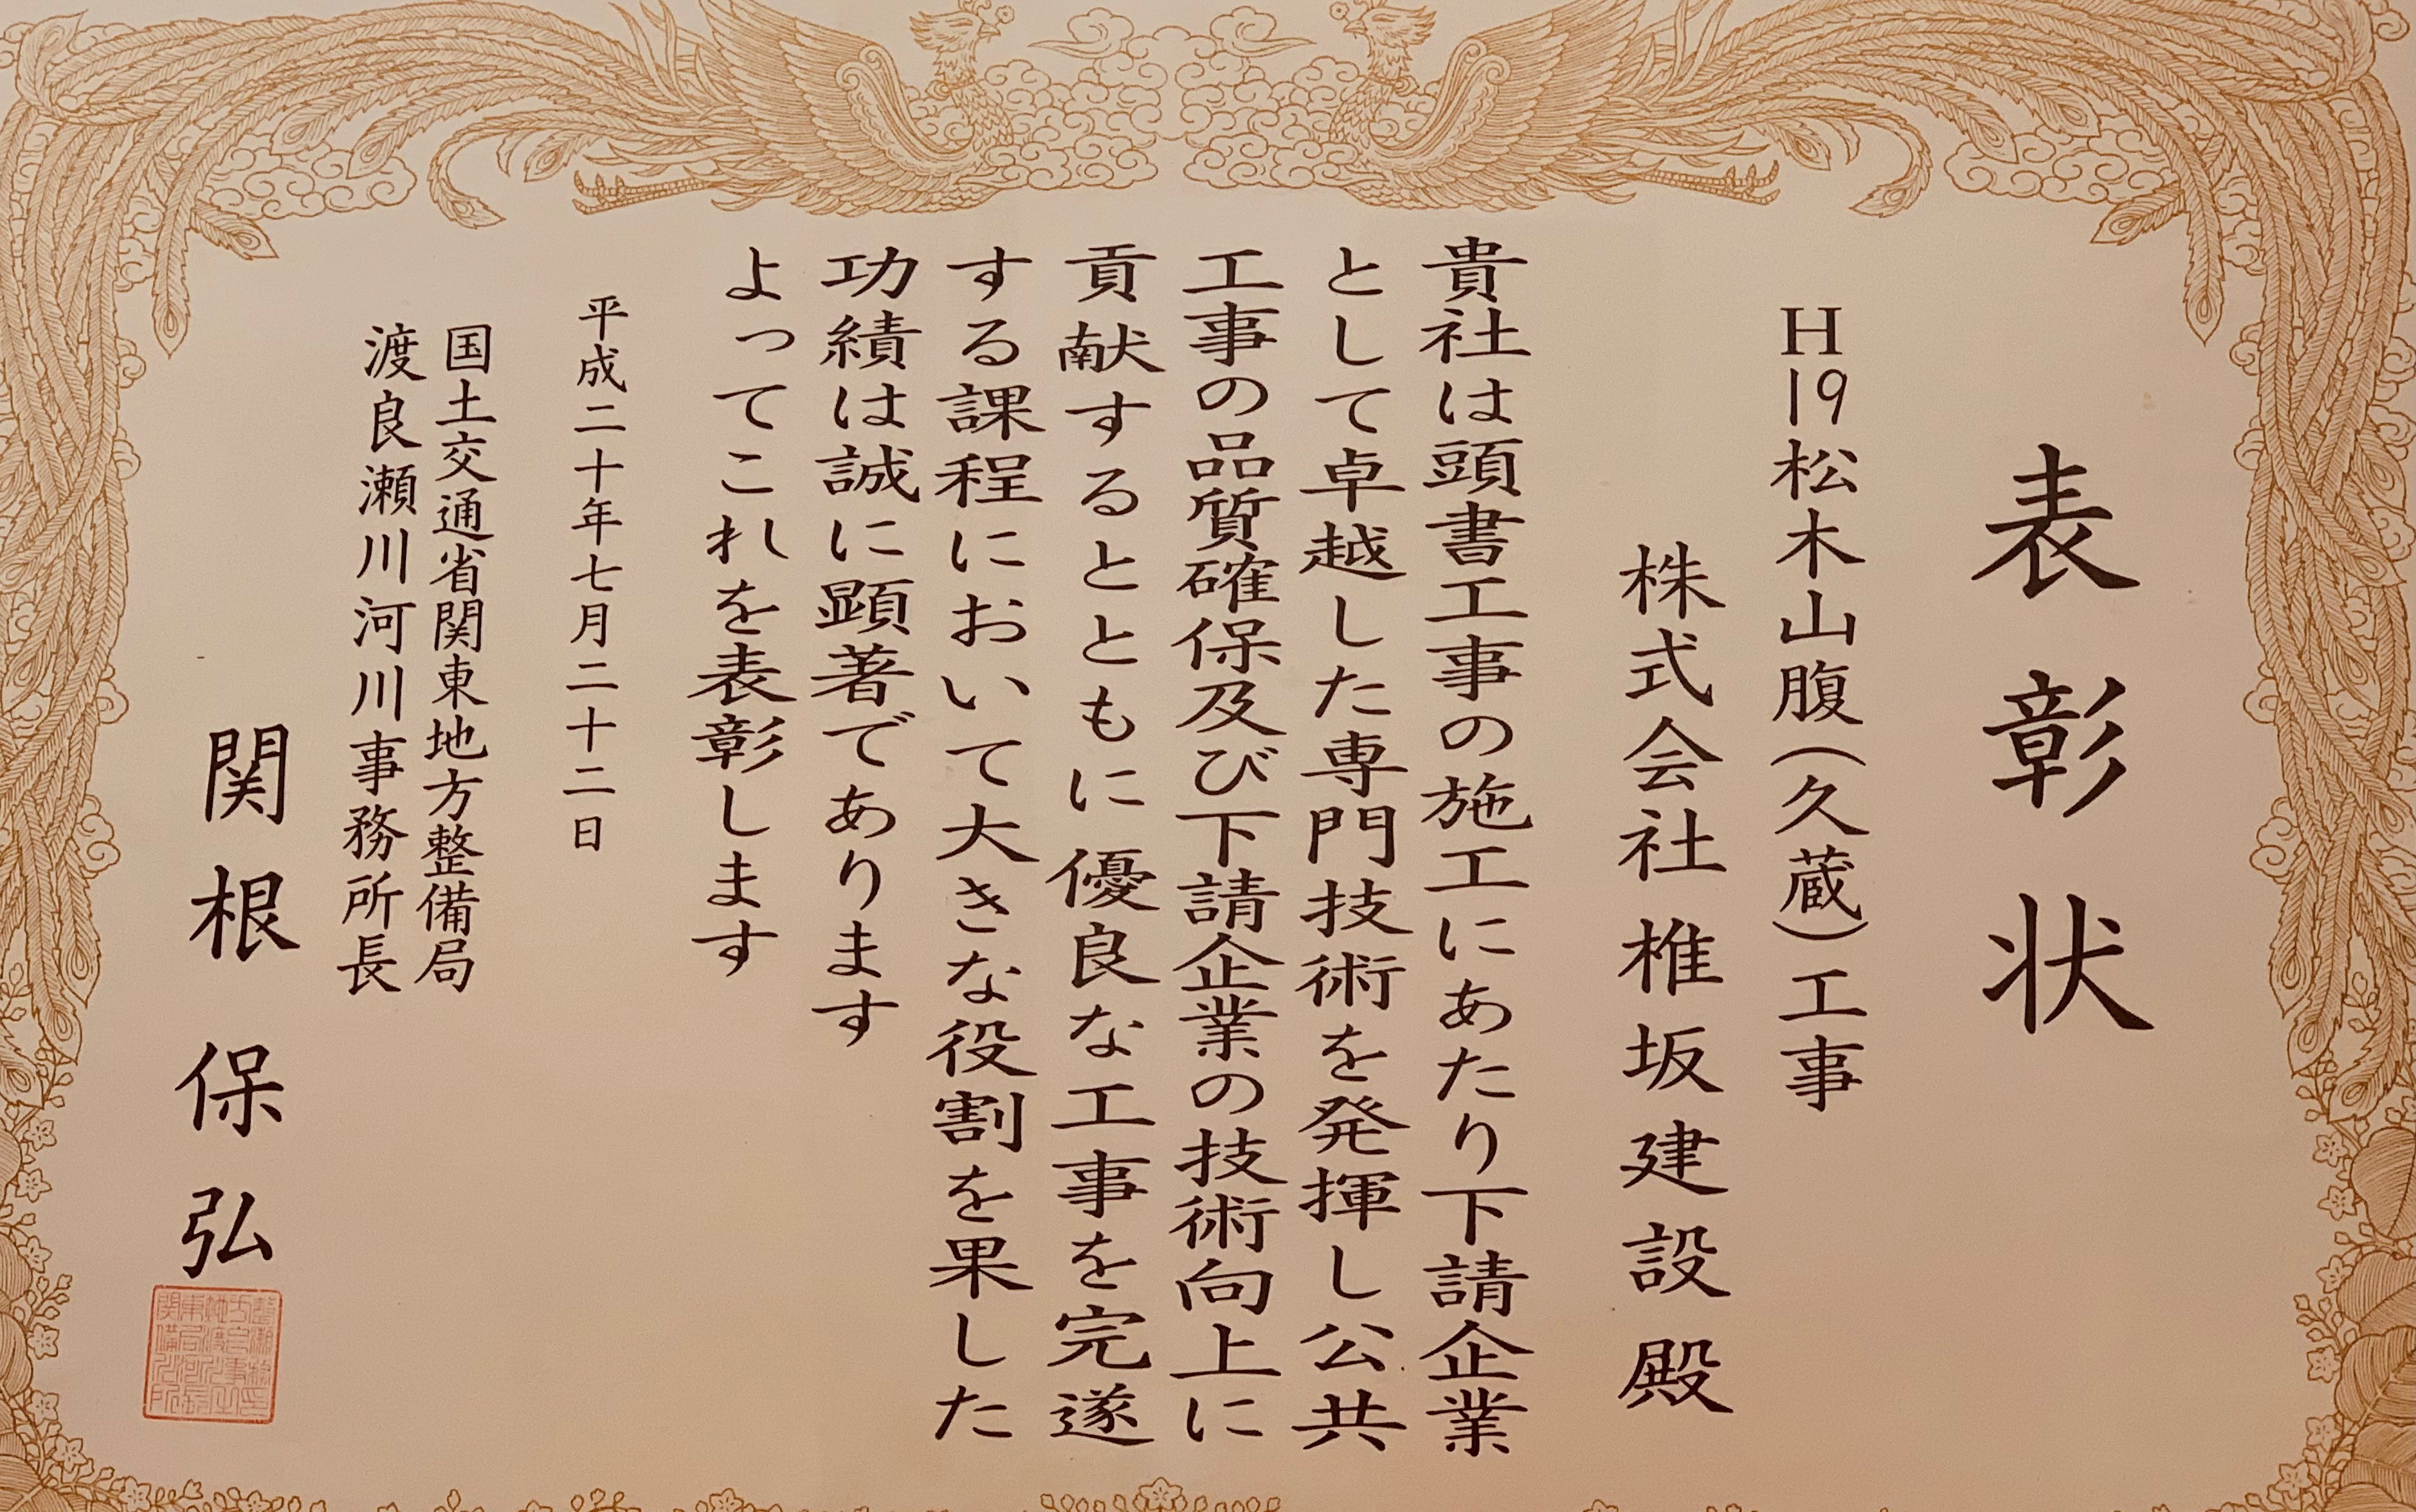 表彰状
H19松木山腹(久蔵)工事
株式会社椎坂建設殿
貴社は頭書工事の施工にあたり下請企業
として卓越した専門技術を発揮し公共
工事の品質確保及び下請企業の技術向上に
貢献するとともに優良な工事を完遂
する課程において大きな役割を果した
功績は誠に顕著であります
よってこれを表彰します
平成二十年七月二十二日
国土交通省関東地方整備局
渡良瀬川河川事務所長
関根保弘